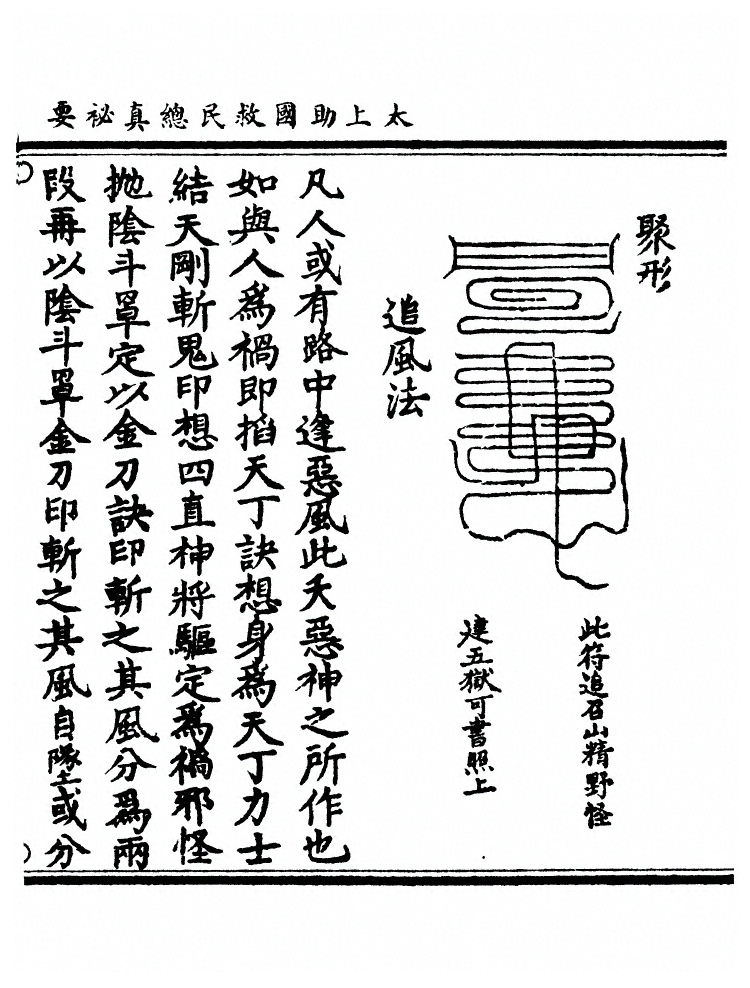 太上助國救民總真祕要
聚形
此符追召山精野怪
建五獄可書照上
追風法
凡人或有路中逢惡風此天惡神之所作也
如與人爲禍即掐天丁訣想身爲天丁力士
結天剛斬鬼印想四直神將驅定爲禍邪怪
拋陰斗罩定以金刀訣印斬之其風分爲兩
段再以陰斗罩金刀印斬之其風自隊土或分